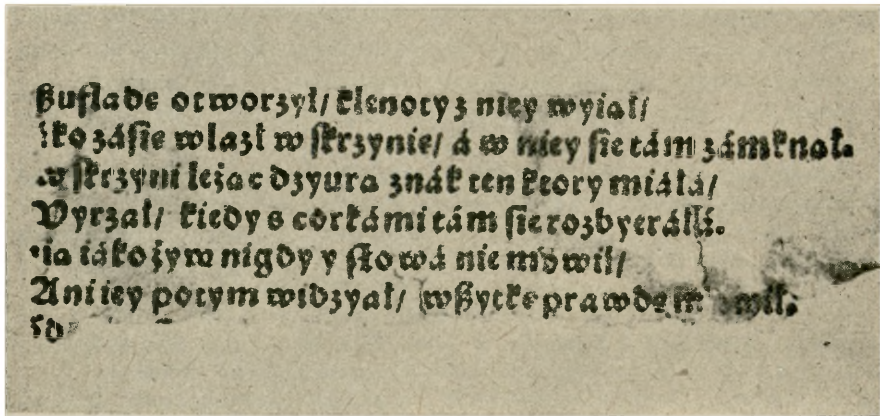 Szuflade otworzył/ klenoty z niey wyiał/
zásie wlazł w skrzynie/ á w niey sie tám zámknął.
w skrzyni leżac dzyura znák ten ktory miáłá/
Vyrzał/ kiedy s corkámi tám sie rozbyeráłá.
iáko żyw nigdy y słowá nie mowił/
Ani iey potym widzyał/ wszytke prawde